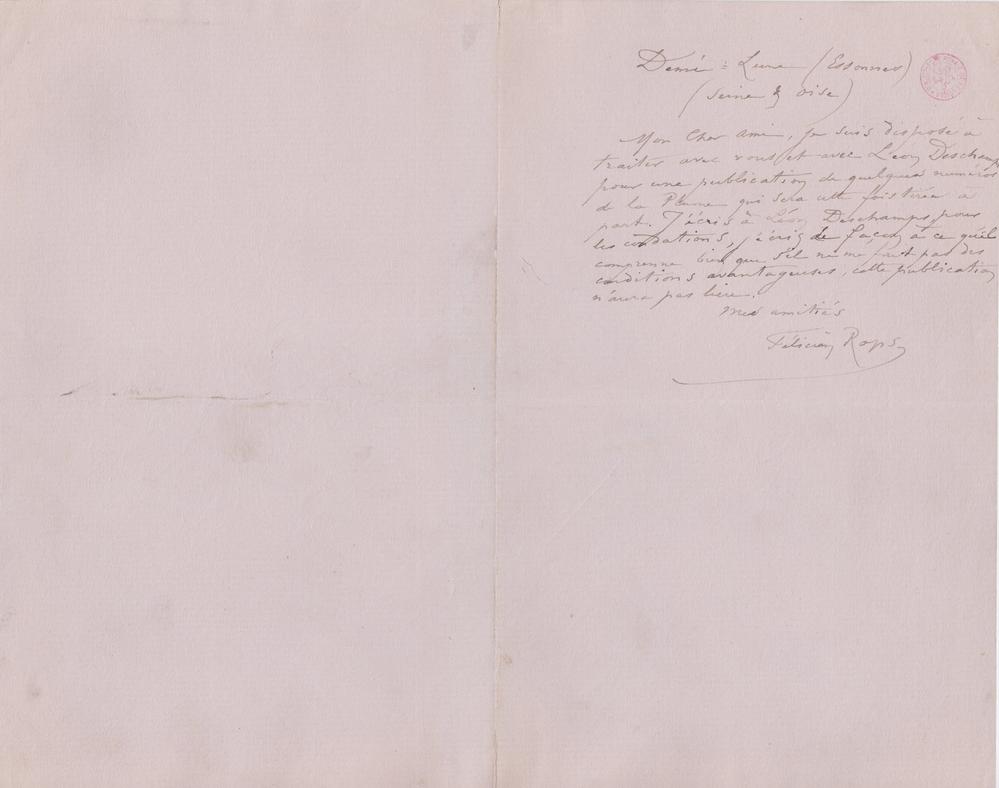 Demi = Lune (Essonnes)
(Seine & Oise)
Mon Cher Ami, je suis disposé à
traiter avec vous et avec Léon Deschamps
pour une publication de quelques numéros
de la Plume qui sera cette fois tirée à
part. J'écris à Léon Deschamps pour
les conditions, j'écris de façon à ce qu'il
comprenne bien que s'il ne me fait pas des
conditions avantageuses, cette publication
n'aura pas lieu.
Mes amitiés
Félicien Rops